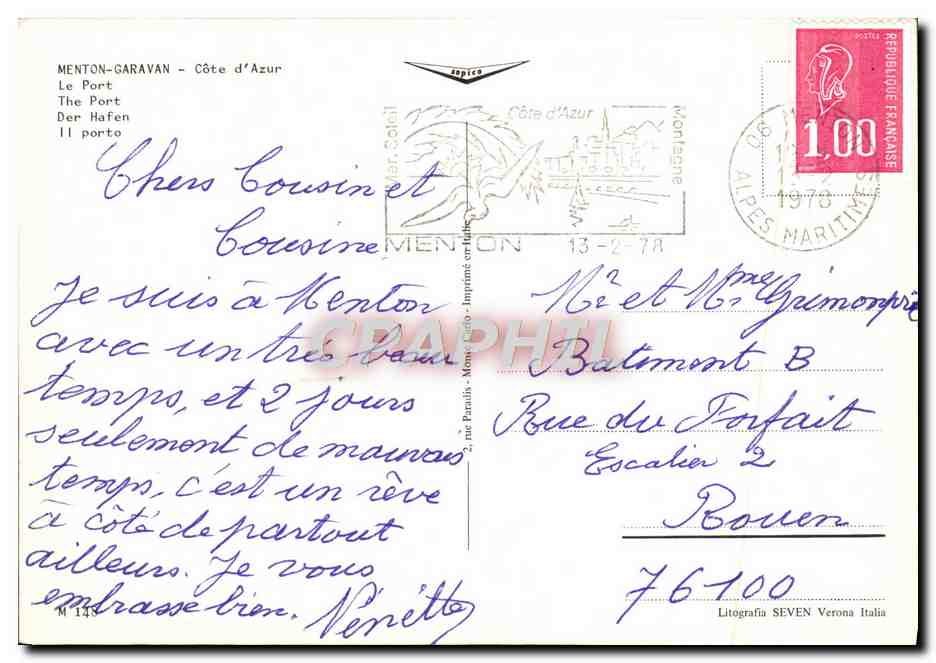 MENTON-GARAVAN - Côte d'Azur
Le Port
The Port
Der Hafen
Il porto
sopico
Mer. Soleil
Côte d'Azur
Montagne
MENTON
13-2-78
06
1978
ALPES MARITIMES
POSTES
REPUBLIQUE FRANÇAISE
1,00
Chers Cousin et
Cousine
Je suis à Menton
avec un très beau
temps, et 2 jours
seulement de mauvais
temps, c'est un rêve
à côté de partout
ailleurs. Je vous
embrasse bien.
2, rue Paradis - Monte Carlo - Imprimé en Italie
Mr et Mme Grimonpré
Batiment B
Rue du Forfait
Escalier 2
Rouen
76100
M 148
Litografia SEVEN Verona Italia
CPAPHIL